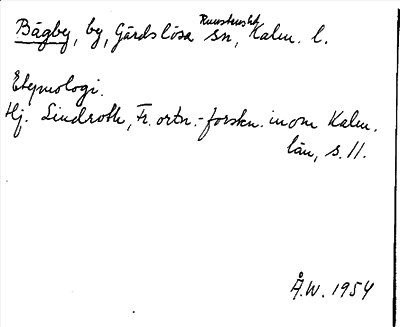 Runstens hd
Bägby, by, Gärdslösa sn, Kalm. l.
Etymologi.
Hj. Lindroth, Fr. ortn.-forskn. inom Kalm.
län, s. 11.
Å.W. 1954